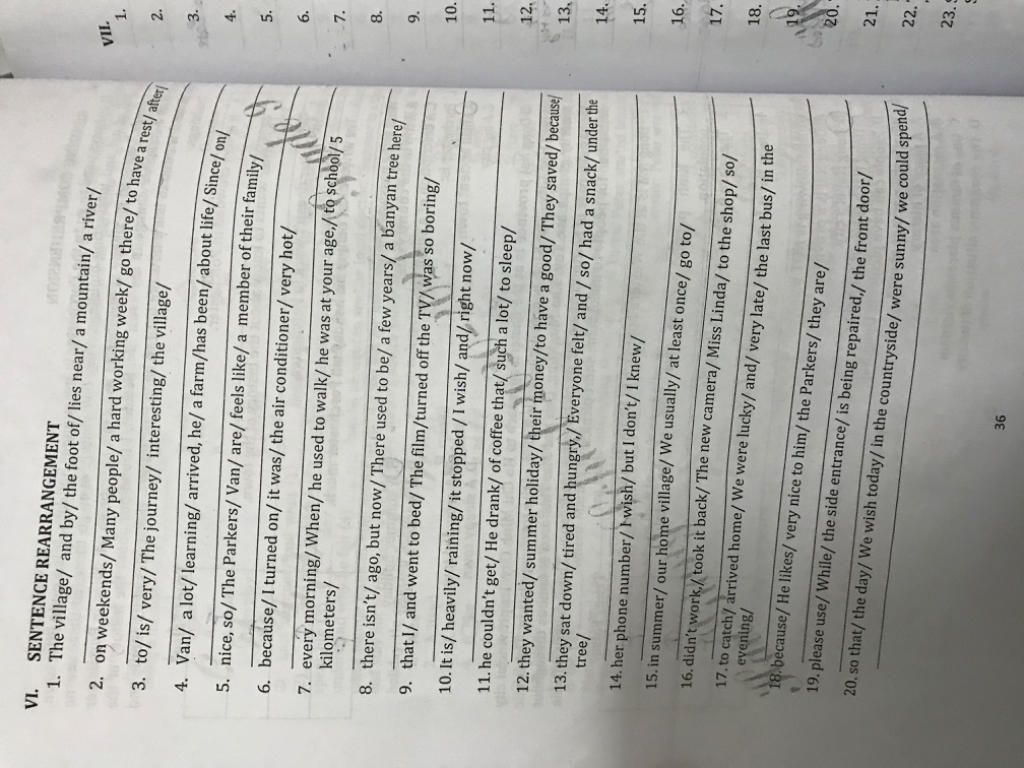 VI. SENTENCE REARRANGEMENT
1. The village/ and by/ the foot of/ lies near/ a mountain/ a river/
2. on weekends/ Many people/ a hard working week/ go there/ to have a rest/ after/
3. to/ is/ very/ The journey/ interesting/ the village/
4. Van/ a lot/ learning/ arrived, he/ a farm/has been/ about life/ Since/ on/
5. nice, so/ The Parkers/ Van/ are/ feels like/ a member of their family/
6. because/ I turned on/ it was/ the air conditioner/ very hot/
7. every morning/ When/ he used to walk/ he was at your age,/ to school/ 5
kilometers/
8. there isn't/ ago, but now/ There used to be/ a few years/ a banyan tree here/
9. that I/ and went to bed/ The film/turned off the TV/ was so boring/
10. It is/ heavily/ raining/ it stopped / I wish/ and/ right now/
11. he couldn't get/ He drank/ of coffee that/ such a lot/ to sleep/
12. they wanted/ summer holiday/ their money/to have a good/ They saved/ because/
13. they sat down/ tired and hungry,/ Everyone felt/ and / so/ had a snack/ under the
tree/
14. her phone number/ I wish/ but I don't/ I knew/
15. in summer/ our home village/ We usually/ at least once/ go to/
16. didn't work,/ took it back/ The new camera/ Miss Linda/ to the shop/ so/
17. to catch/ arrived home/ We were lucky/ and/ very late/ the last bus/ in the
evening/
18. because/ He likes/ very nice to him/ the Parkers/ they are/
19. please use/ While/ the side entrance/ is being repaired,/ the front door/
20. so that/ the day/ We wish today/ in the countryside/ were sunny/ we could spend/
36
VII.
1.
2.
3.
4.
5.
6.
7.
8.
9.
10.
11.
12.
13.
14.
15.
16.
17.
18.
19.
20.
21.
22.
23.